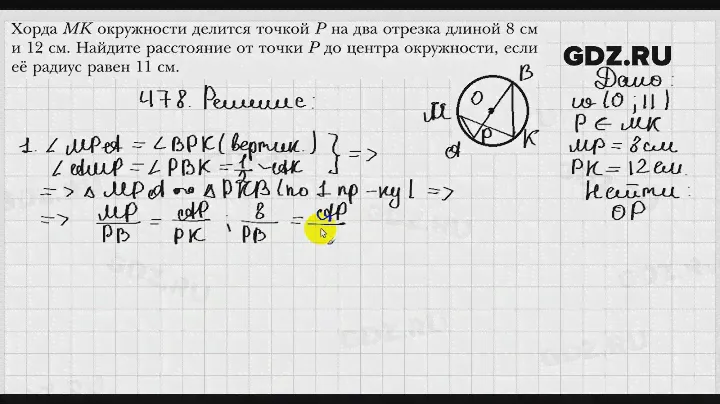 Хорда MK окружности делится точкой P на два отрезка длиной 8 см
и 12 см. Найдите расстояние от точки P до центра окружности, если
её радиус равен 11 см.
GDZ.RU
478. Решение:
Дано:
w(O; 11)
P ∈ MK
MP = 8 см
PK = 12 см
Найти:
OP
B
O
M
A
P
K
1. ∠MPA = ∠BPK (вертик.)
∠AMP = ∠PBK = 1/2 ◡AK } =>
=> △MPA ~ △PKB (по 1 пр-ку) =>
=> MP/PB = AP/PK ; 8/PB = AP/